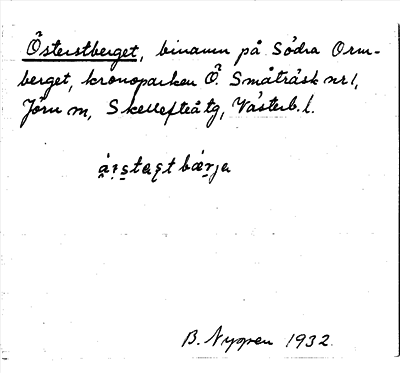 Österstberget, binamn på Södra Orm-
berget, kronoparken Ö. Småträsk nr 1,
Jörn sn, Skellefteå tg, Västerb. l.
B. Nygren 1932.